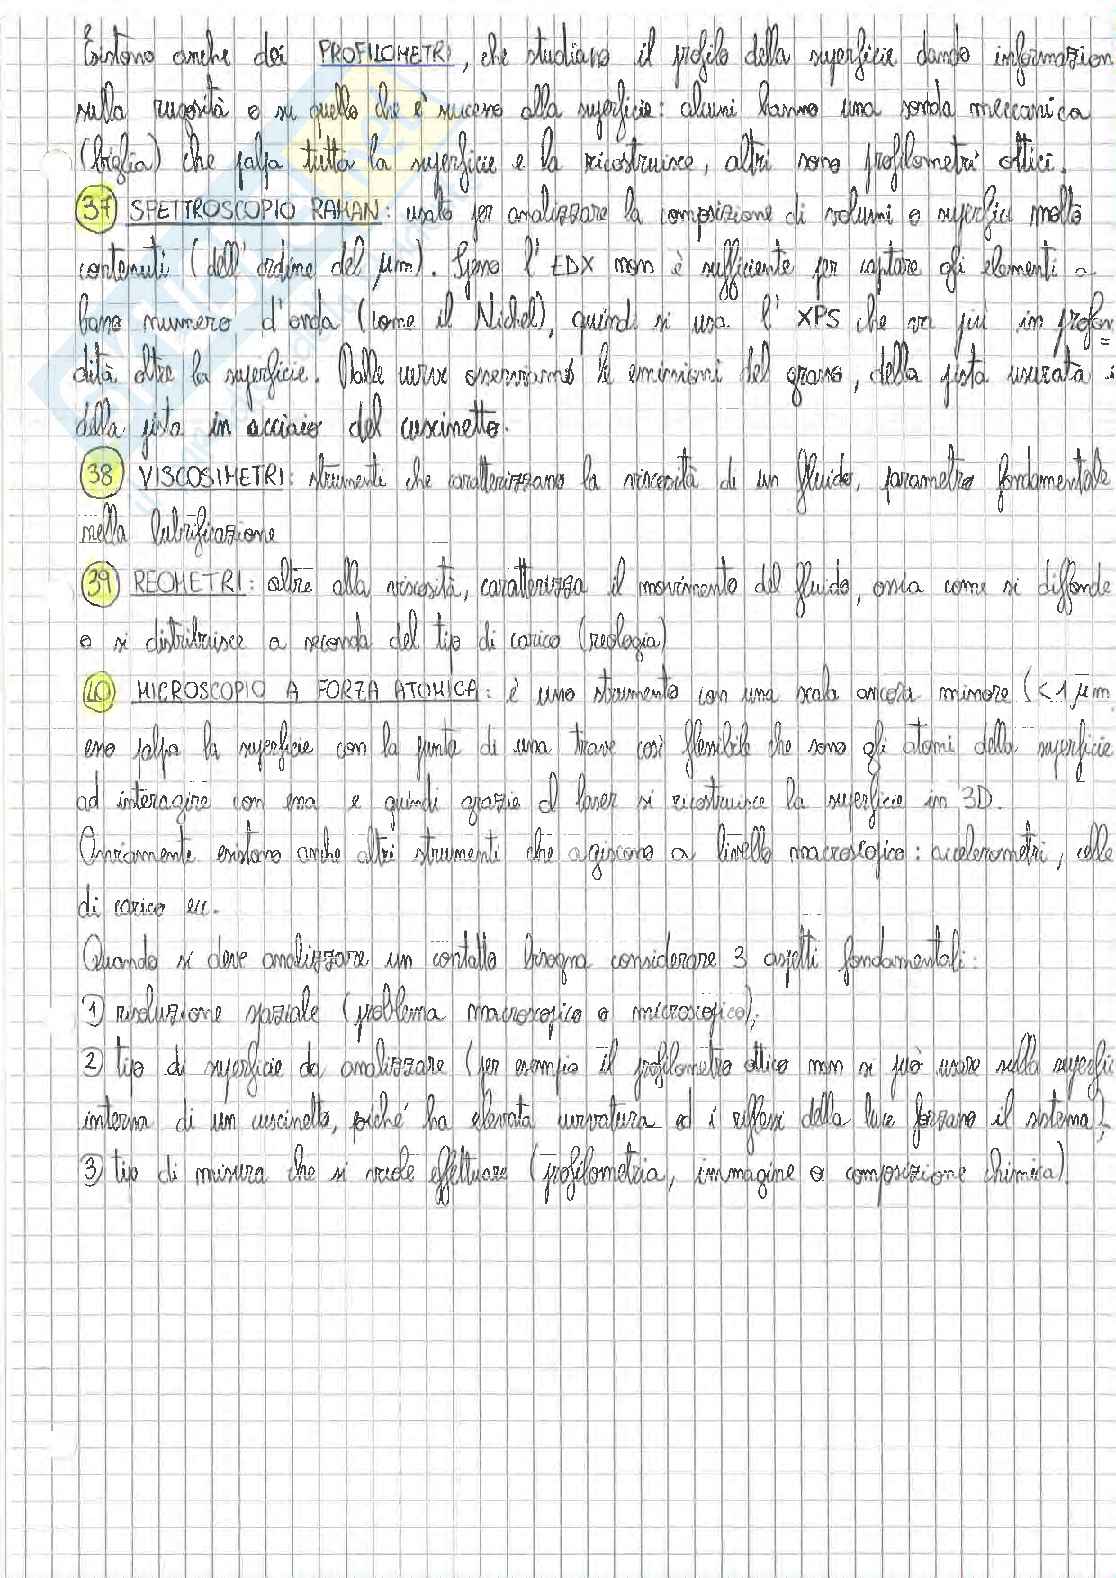 Esistono anche dei PROFILOMETRI, che studiano il profilo della superficie dando informazion
sulla rugosità o su quello che è successo alla superficie: alcuni hanno una sonda meccanica
(biglia) che palpa tutta la superficie e la ricostruisce, altri sono profilometri ottici.
37 SPETTROSCOPIO RAMAN: usato per analizzare la composizione di volumi o superfici molto
contenuti (dell'ordine del μm). Spesso l'EDX non è sufficiente per captare gli elementi a
basso numero d'onda (come il Nichel), quindi si usa l'XPS che va più in profon=
dità oltre la superficie. Dalle curve osserviamo le emissioni del grasso, della pista usurata e
della pista in acciaio del cuscinetto.
38 VISCOSIMETRI: strumenti che caratterizzano la viscosità di un fluido, parametro fondamentale
nella lubrificazione
39 REOMETRI: oltre alla viscosità, caratterizza il movimento del fluido, ossia come si diffonde
o si distribuisce a seconda del tipo di carico (reologia)
40 MICROSCOPIO A FORZA ATOMICA: è uno strumento con una scala ancora minore (<1 μm
esso palpa la superficie con la punta di una trave così flessibile che sono gli atomi della superficie
ad interagire con essa e quindi grazie al laser si ricostruisce la superficie in 3D.
Ovviamente esistono anche altri strumenti che agiscono a livello macroscopico: accelerometri, celle
di carico ecc.
Quando si deve analizzare un contatto bisogna considerare 3 aspetti fondamentali:
1) risoluzione spaziale (problema macroscopico o microscopico);
2) tipo di superficie da analizzare (per esempio il profilometro ottico non si può usare sulla superfici
interna di un cuscinetto, poiché ha elevata curvatura ed i riflessi della luce falsano il sistema);
3) tipo di misura che si vuole effettuare (profilometria, immagine o composizione chimica).